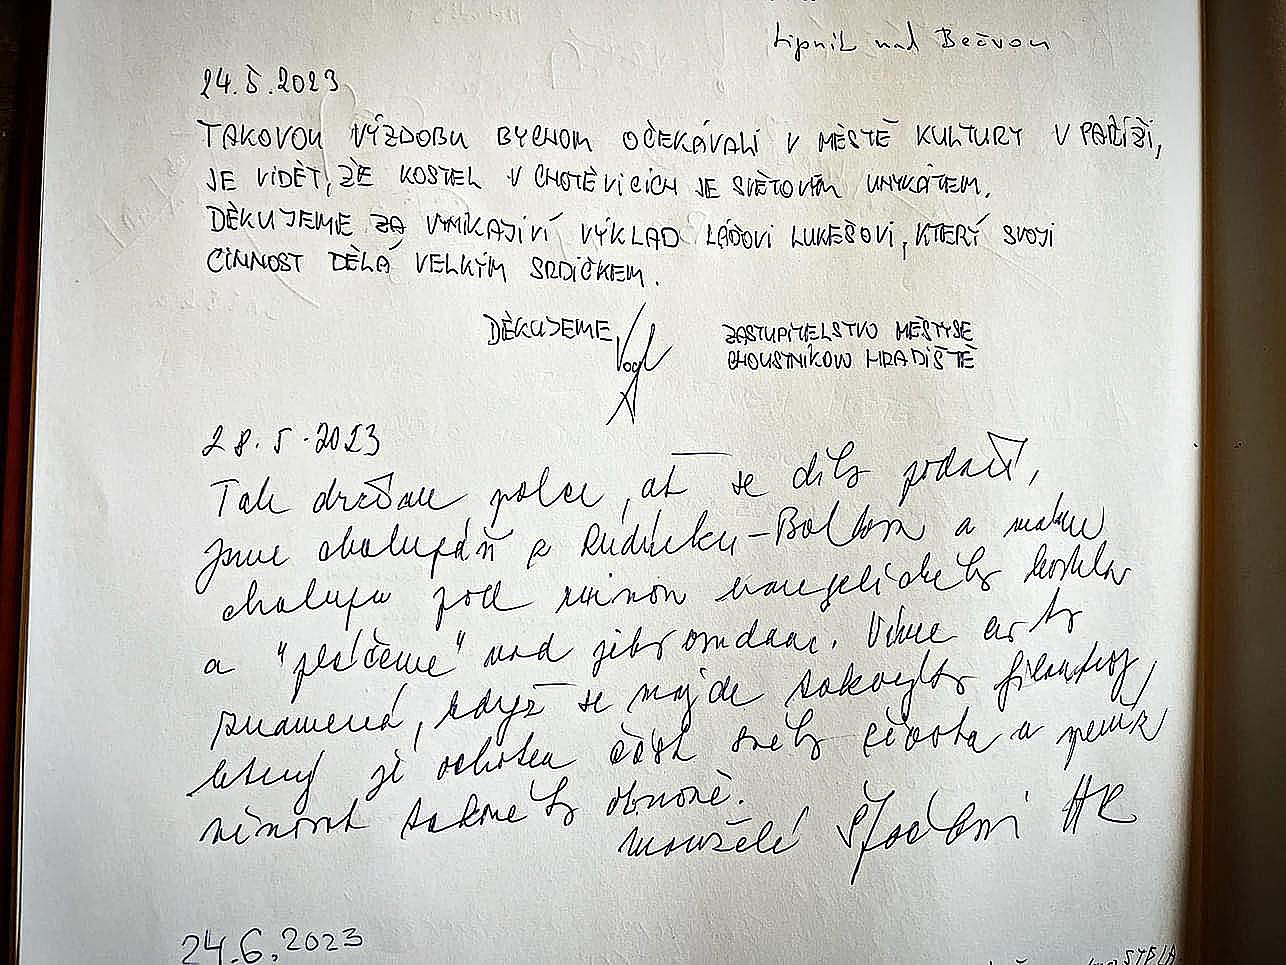 Lipník nad Bečvou
24.5.2023
TAKOVOU VÝZDOBU BYCHOM OČEKÁVALI V MĚSTĚ KULTURY V PAŘÍŽI,
JE VIDĚT, ŽE KOSTEL V CHOTĚVICÍCH JE SVĚTOVÝM UNIKÁTEM.
DĚKUJEME ZA VYNIKAJÍVÍ VÝKLAD LÁĎOVI LUKEŠOVI, KTERÝ SVOJI
ČINNOST DĚLÁ VELKÝM SRDÍČKEM.
DĚKUJEME, Vogl
ZASTUPITELSTVO MĚSTYSE
CHOUSTNÍKOVO HRADIŠTĚ
28.5.2023
Tak držíme palce, ať se dílo podaří,
jsme chalupáři z Rudníku-Bolkov a máme
chalupu pod ruinou evangelického kostela
a "pláčeme" nad jeho osudem. Víme co to
znamená, když se najde takovýto filantrop,
který je ochoten část svého života a peněz
věnovat takovéto obnově.
manželé HK
24.6.2023